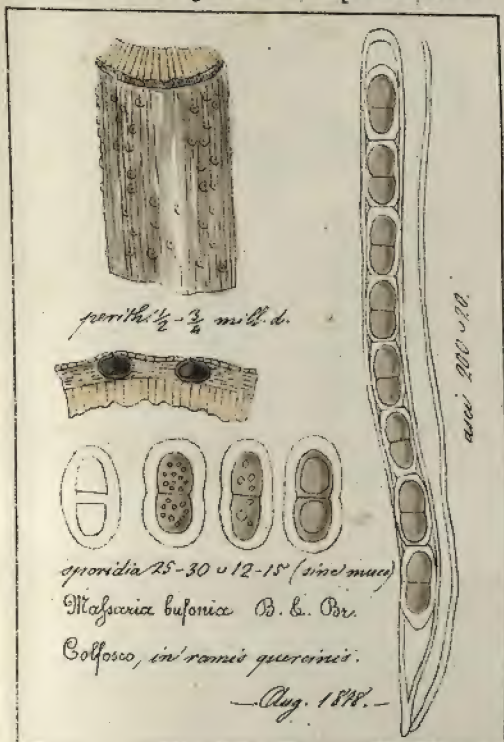 perith. ½ - ¾ mill. d.
asci 200 ∪ 20.
sporidia 25-30 ∪ 12-15 (sine muco)
Maſsaria bufonia B. & Br.
Colfosco, in ramis quercinis.
— Aug. 1878. —